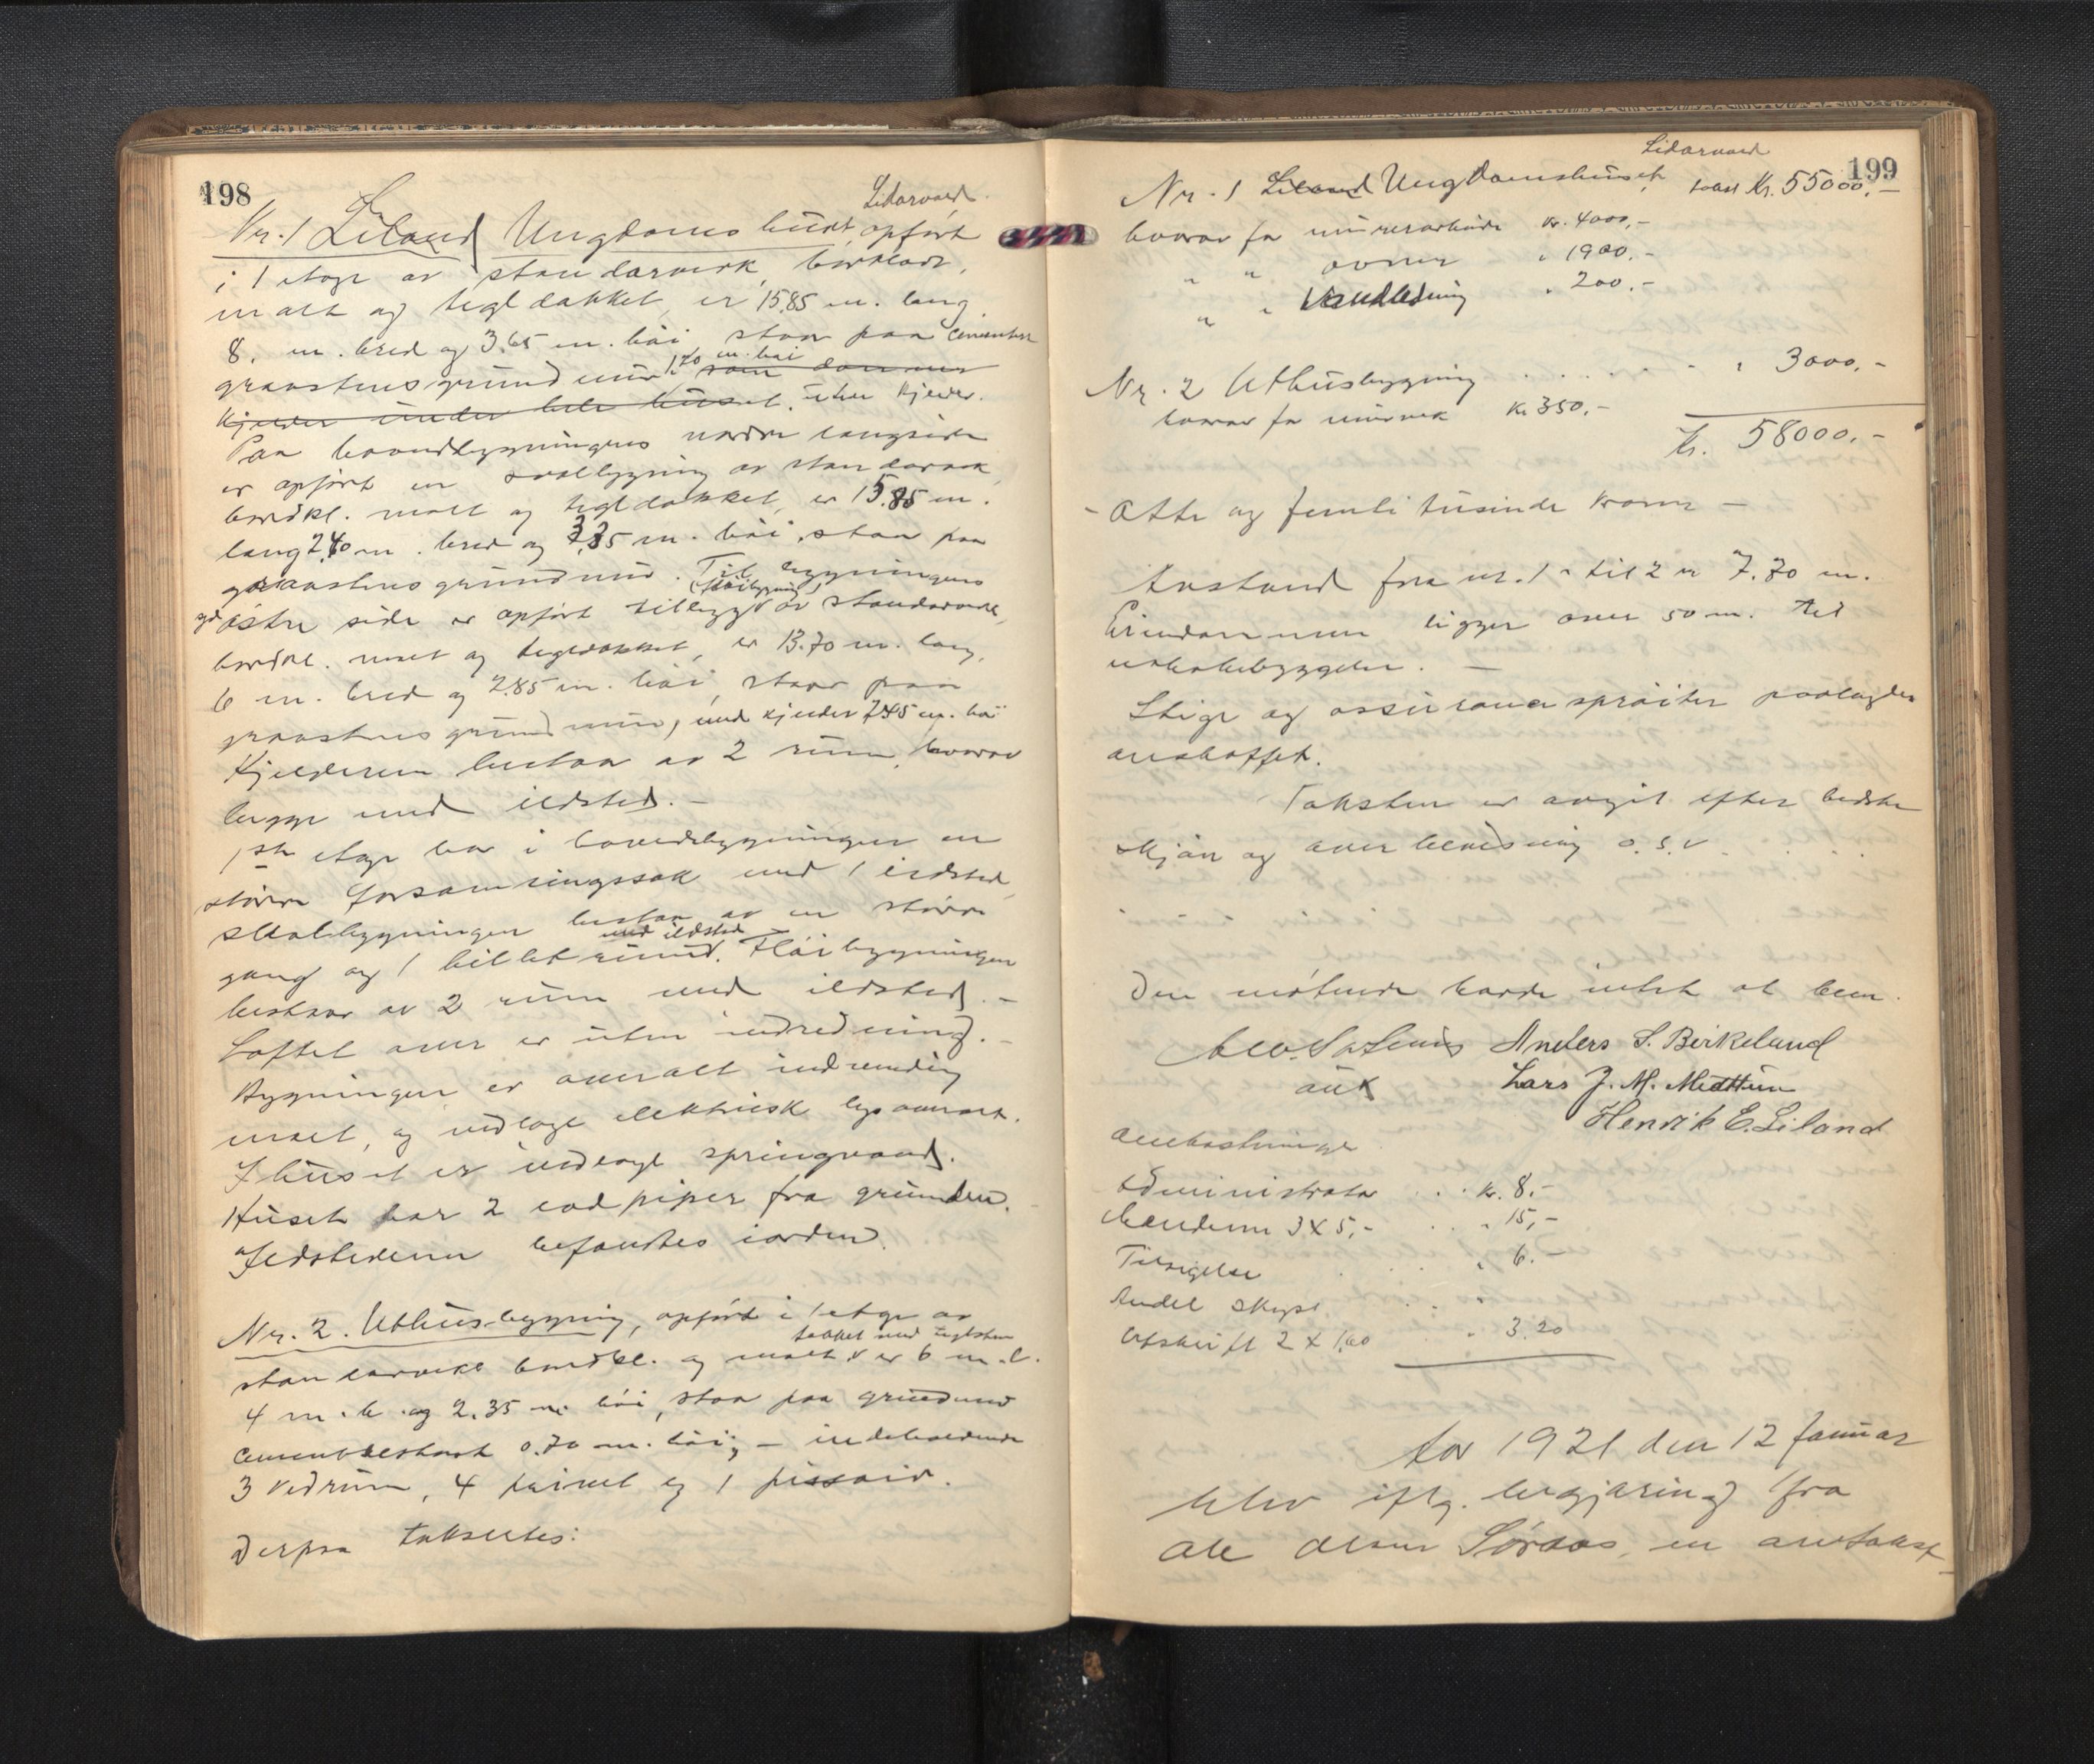 198
Lidarvard
Nr. 1 Liland Ungdomshuset, opført
i 1 etage av standarverk, bordklædt,
malt og tegltækket, er 15,85 m. lang
8. m. bred og 3.65 m. høi staar paa cementert
graastens grundmur 1,70 m. høi som danner
kjelder under hele huset. uten kjelder.
Paa hovedbygningens nordre langside
er opført en svalbygning av standarverk
bordkl. malt og tegltækket, er 15,85 m.
lang 2,40 m. bred og 3,35 m. høi, staar paa
graastens grundmur. Til bygningens
(fløibygning)
syd østre side er opført tilbygg av standarverk,
bordkl. malt og tegltækket, er 13.70 m. lang,
6 m. bred og 2,85 m. høi, staar paa
graastens grundmur, med kjelder 2,45 m. høi
Kjelderen bestaar av 2 rum, hvorav
begge med ildsted. –
1ste etage har i hovedbygningen en
større forsamlingssal med 1 ildsted,
svalbygningen bestaar av en større
med ildsted
gang og 1 billetrum. Fløibygningen
bestaar av 2 rum med ildsted. –
Loftet over er uten indredning. –
Bygningen er overalt indvendig
malt, og indlagt elektrisk lys overalt.
I huset er indlagt springvand.
Huset har 2 rødpiper fra grunden.
Ildstederne befandtes i orden.
Nr. 2. Uthusbygning, opført i 1 etage av
tækket med teglsten
standarverk bordkl. og malt er 6 m. l.
4 m. b. og 2,35 m. høi, staar paa grundmur
cementstøpt 0.70 m. høi, – indeholdende
3 vedrum, 4 privet og 1 pissoir.
Derpaa takseres:
199
Lidarvard
Nr. 1 Liland Ungdomshuset takst Kr. 55000,–
hvorav for murerarbeide Kr. 4000,–
" " ovner " 1900.–
" " Vandledning " 200.–
Nr. 2 Uthusbygning . . . . . . " 3000,–
hvorav for murverk Kr 350,–
Kr. 58000.–
– Otte og femti tusinde kroner –
Avstand fra nr. 1 til 2 er 7.70 m.
Eiendommen ligger over 50 m. til
nabobebyggelse. –
Stige og assuransesprøiter paalagdes
anskaffet.
Taksten er avgit efter bedste
skjøn og overbevisning o. s. v.
Den møtende hadde intet at bem.
Anders S. Birkeland
Lars J. M. Midttun
Henrik E. Liland
Omkostninger
Administrator . . . Kr. 8.–
Mændene 3 X 5,– . . " 15,–
Tilsigelse . . . " 6.–
Andel skyss . . "
Utskrift 2 X 1,60 . " 3.20
Aar 1921 den 12 januar
blev iflg. begjæring fra
Ole Olsen Søraas, en omtakst